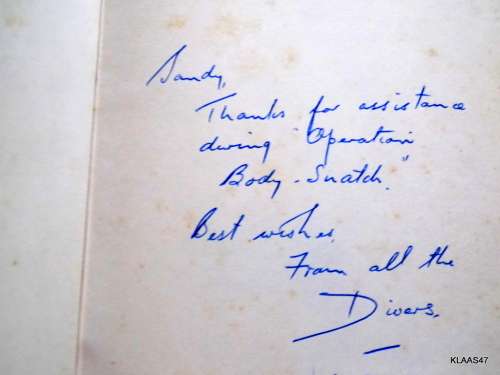 Sandy,
Thanks for assistance
during "Operation
Body-Snatch."
Best wishes
From all the
Divers.
KLAAS47